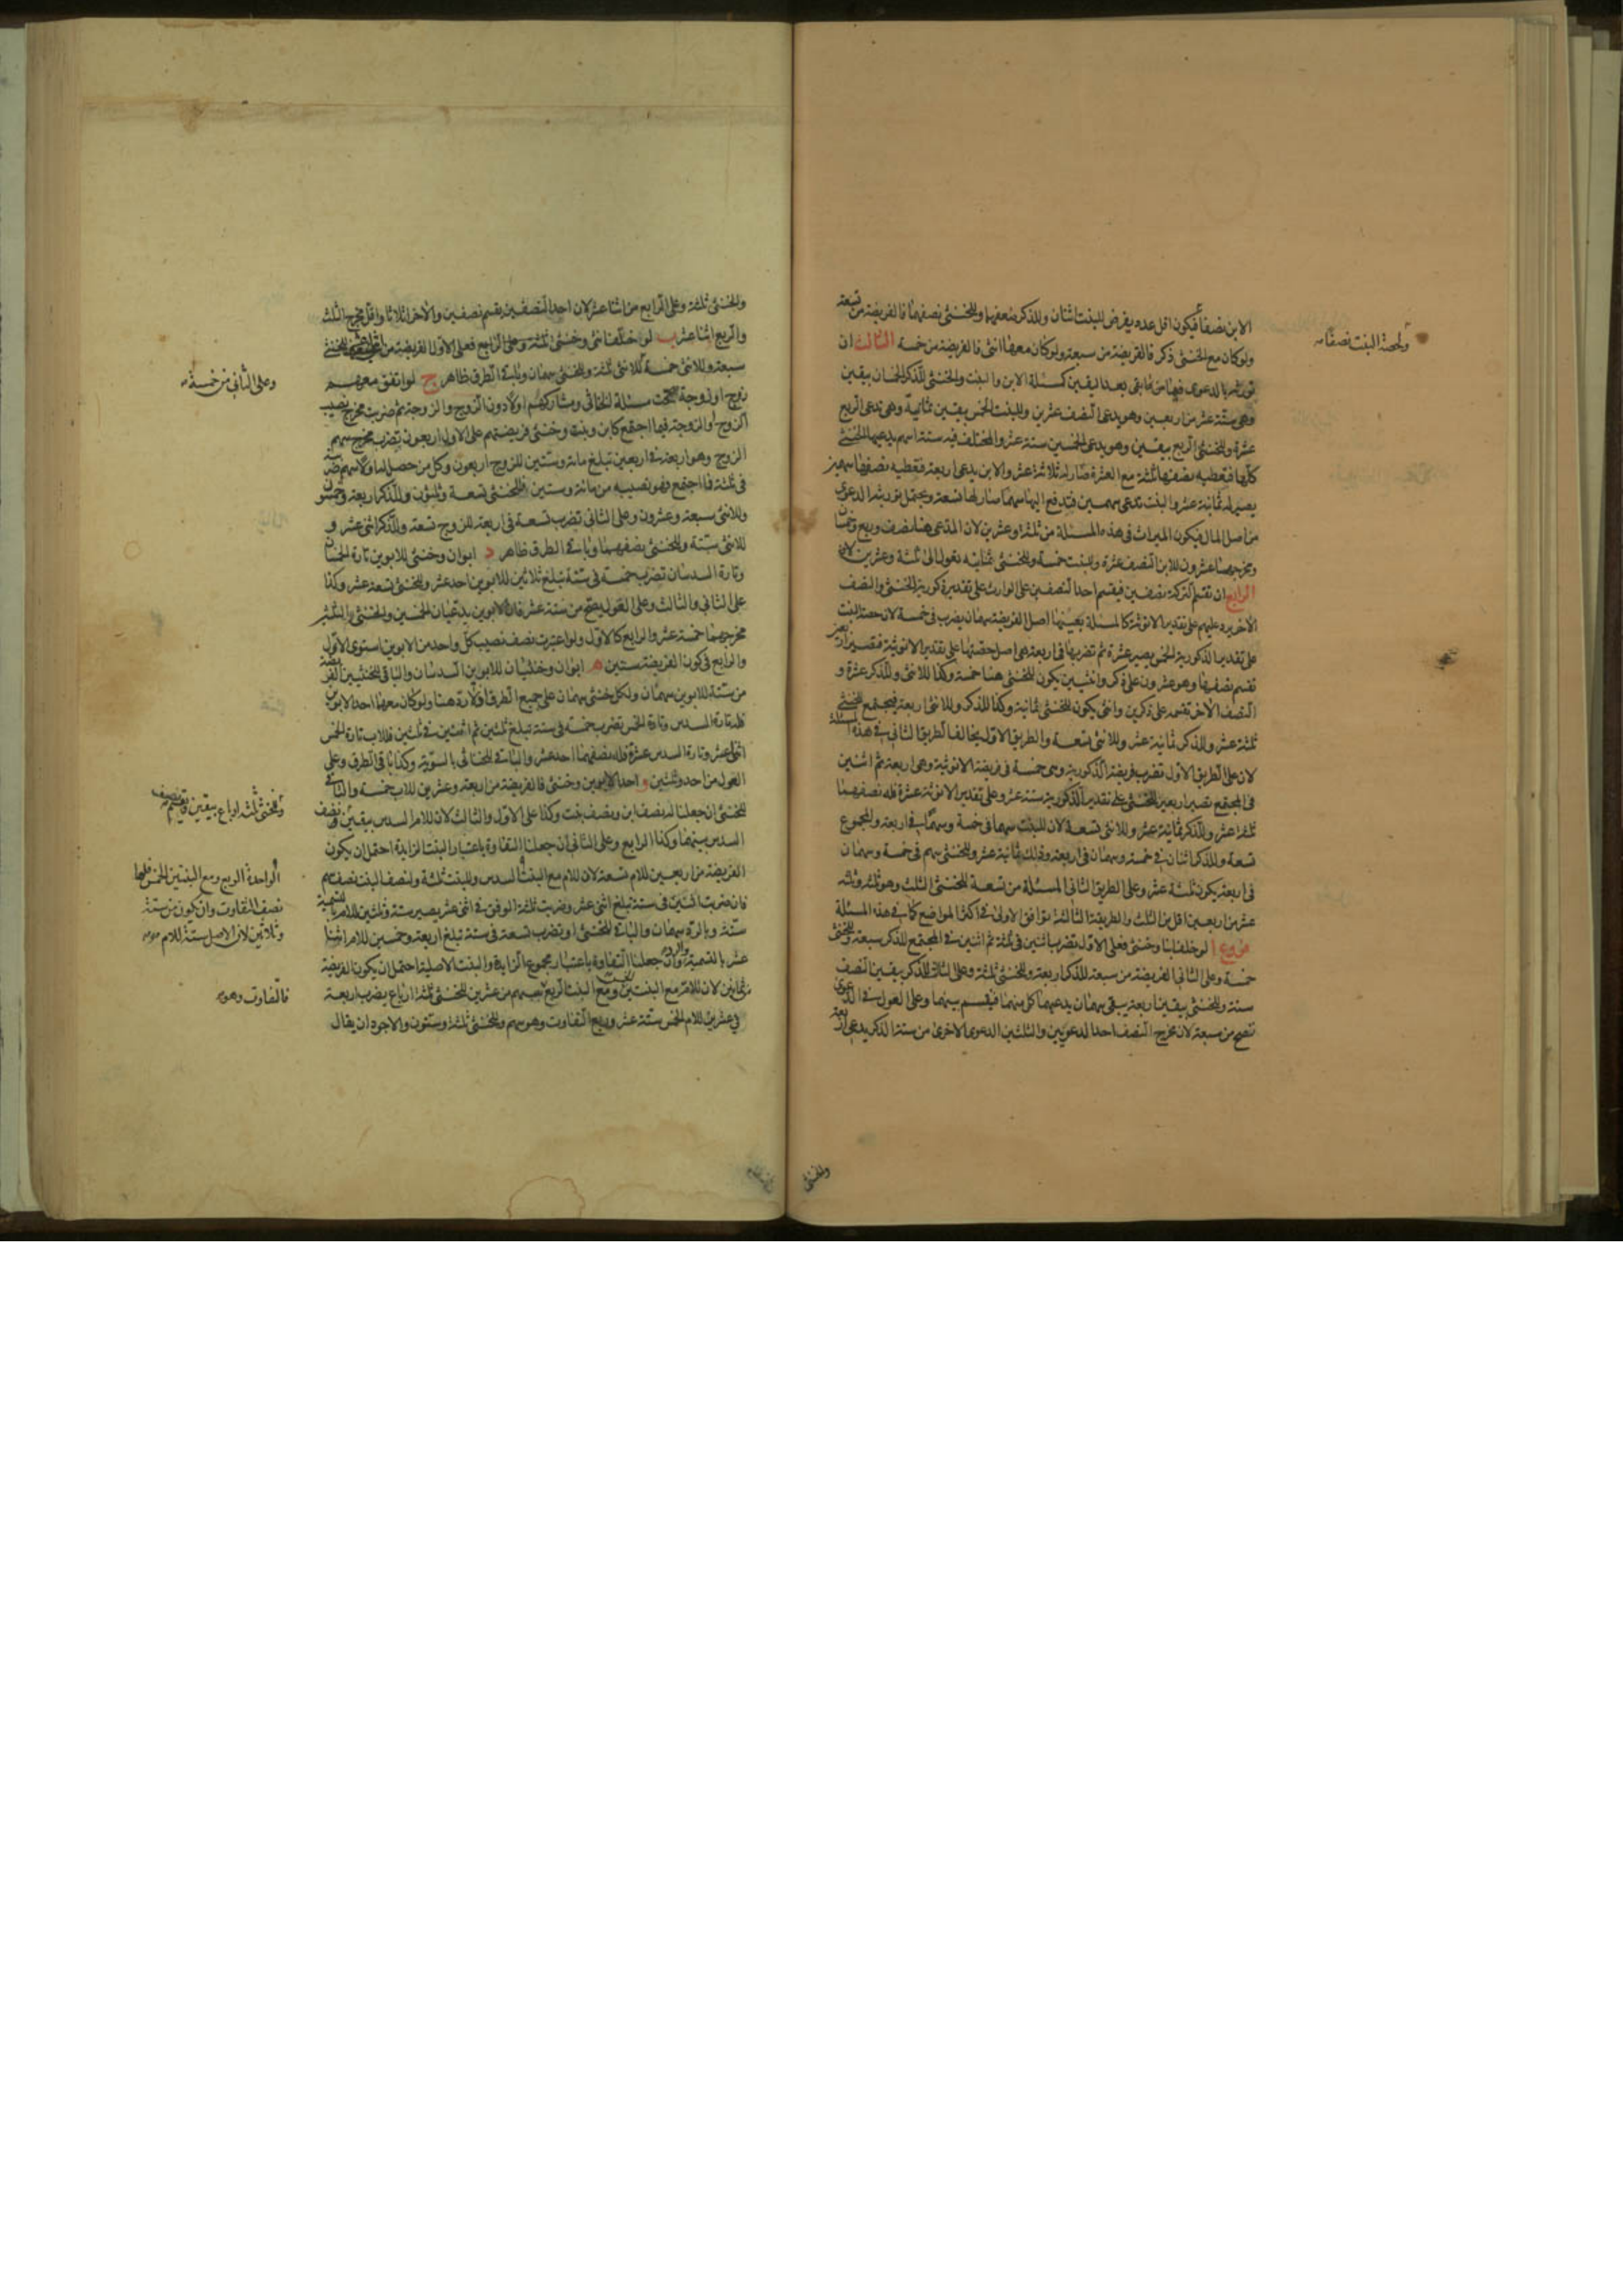 الابن نصفا فيكون اقل عدد يفرض للبنت اثنان وللذكر ضعفها وللخنثى نصفهما فالفريضة من تسعة
ولحصة البنت نصفا
ولو كان مع الخنثى ذكر فالفريضة من سبعة ولو كان معهما انثى فالفريضة من خمسة الثالث ان
تورثه بالدعوى فيما بقى بعد اليقين كمسئلة الابن والبنت والخنثى للذكر الخمسان بيقين
وهى ستة عشر من اربعين وهو يدعى النصف عشرين وللبنت الخمس بيقين ثمانية وهى تدعى الربع
عشرة وللخنثى الربع بيقين وهو يدعى الخمسين ستة عشر والمختلف فيه ستة اسهم يدعيها الخنثى
كلها فيعطيه نصفها ثلثة مع العشرة صار له ثلاثة عشر والابن يدعى اربعة فيعطيه نصفها سهمين
يصير له ثمانية عشر والبنت تدعى سهمين فيدفع اليها سهما صار لها تسعة ويحتمل توريثه الدعوى
من اصل المال فيكون الميراث فى هذه المسئلة من ثلثة وعشرين لان المدعى هنا نصف وربع وخمسان
ومخرجها عشرون للابن النصف عشرة وللبنت خمسة وللخنثى ثمانية تعول الى ثلثة وعشرين
الرابع ان تقسم التركة نصفين فيقسم احد النصفين على الوارث على تقدير ذكورية الخنثى والنصف
الاخر يرد عليهم على تقدير الانوثة كالمسئلة بعينها اصل الفريضة سهمان يضرب فى خمسة لان حصة البنت
على تقدير الذكورية الخمس يصير عشرة ثم تضربها فى اربعة هى اصل حصتها على تقدير الانوثية فتصير اربعين
تقسم نصفها وهو عشرون على ذكر وانثيين يكون للخنثى هنا خمسة وكذا للانثى وللذكر عشرة و
النصف الاخر تقسمه على ذكرين وانثى يكون للخنثى ثمانية وكذا للذكر وللانثى اربعة فيجتمع للخنثى
ثلثة عشر وللذكر ثمانية عشر وللانثى تسعة والطريق الاول يخالف الطريق الثانى فى هذه المسئلة
لان على الطريق الاول تضرب فريضة الذكورية وهى خمسة فى فريضة الانوثية وهى اربعة ثم اثنين
فى المجتمع تصير اربعين للخنثى على تقدير الذكورية ستة عشر وعلى تقدير الانوثة عشرة فله نصفهما
ثلثة عشر وللذكر ثمانية عشر وللانثى تسعة لان للبنت سهما فى خمسة وسهما فى اربعة والمجموع
تسعة وللذكر اثنان فى خمسة وسهمان فى اربعة وذلك ثمانية عشر وللخنثى سهم فى خمسة وسهمان
فى اربعة يكون ثلثة عشر وعلى الطريق الثانى المسئلة من تسعة للخنثى الثلث وهو ثلثة وثلثة
عشر من اربعين اقل من الثلث والطريقة الثالثة توافق الاولى فى اكثر المواضع كما فى هذه المسئلة
فروع ا لو خلف ابنا وخنثى فعلى الاول تضرب اثنين فى ثلثة ثم اثنين فى المجتمع للذكر سبعة وللخنثى
خمسة وعلى الثانى الفريضة من سبعة للذكر اربعة وللخنثى ثلثة وعلى الثالث للذكر بيقين النصف
ستة وللخنثى بيقين اربعة يبقى سهمان يدعيهما كل منهما فيقسم بينهما وعلى العول فى الدعوى
تصح من سبعة لان مخرج النصف احد الدعويين والثلثين الدعوى الاخرى من ستة الذكر يدعى اربعة
وللخنثى
وللخنثى ثلثة وعلى الرابع من اثنا عشر لان احد النصفين يقسم نصفين والاخر اثلاثا واقل مخرج الثلث
والربع اثنا عشر ب لو خلف انثى وخنثى
سبعة وللانثى خمسة وللخنثى سهمان وباقى الطرق ظاهر ج لو اتفق معهم
وعلى الثانى من خمسة
زوج او زوجة صححت مسئلة الخناثى ومشاركهم اولا دون الزوج والزوجة ثم ضربت مخرج نصيب
الزوج او الزوجة فيما اجتمع كابن وبنت وخنثى فريضتهم على الاول اربعون تضرب مخرج سهم
الزوج وهو اربعة فى اربعين تبلغ مائة وستين للزوج اربعون وكل من حصل له اولا سهم ضربته
فى ثلثة فما اجتمع فهو نصيبه من مائة وستين فللخنثى تسعة وثلثون وللذكر اربعة وخمسون
وللانثى سبعة وعشرون وعلى الثانى تضرب تسعة فى اربعة للزوج تسعة وللذكر اثنى عشر و
للانثى ستة وللخنثى نصفهما وباقى الطرق ظاهر د ابوان وخنثى للابوين تارة الخمسان
وتارة السدسان تضرب خمسة فى ستة تبلغ ثلاثين للابوين احد عشر وللخنثى تسعة عشر وكذا
على الثانى والثالث وعلى العول يصح من ستة عشر فان الابوين يدعيان الخمسين والخنثى والثلثين
مخرجهما خمسة عشر والرابع كالاول ولو اعتبرت نصف نصيب كل واحد من الابوين استوى الاول
والرابع فى كون الفريضة ستين ه ابوان وخنثيان للابوين السدسان والباقى للخنثيين الفريضة
من ستة للابوين سهمان ولكل خنثى سهمان على جميع الطرق اذ لا رد هنا ولو كان معهما احد الابوين
فله تارة السدس وتارة الخمس تضرب خمسة فى ستة تبلغ ثلثين ثم اثنين فى ثلثين فللاب تارة الخمس
اثنا عشر وتارة السدس عشرة فله نصفهما احد عشر والباقى للخناثى بالسوية وكذا باقى الطرق وعلى
العول من احد وثلثين و احد الابوين وخنثى فالفريضة من اربعة وعشرين للاب خمسة والباقى
للخنثى ان جعلنا له نصف ابن ونصف بنت وكذا على الاول والثالث لان للام السدس بيقين ونصف
وللخنثى ثلثة ارباع بيقين
السدس بينهما وكذا الرابع وعلى الثانى ان جعلنا التفاوة باعتبار البنت الزايدة احتمل ان يكون
الفريضة من اربعين للام تسعة لان للام مع البنت السدس وللبنت ثلثة ولنصف البنت نصف سهم
الواحدة الربع ومع البنتين الخمس فلها
نصف التفاوت وان يكون من ستة
وثلاثين لان الاصل ستة للام
فان ضربت اثنين فى ستة تبلغ اثنى عشر وضربت ثلثة الوفق فى اثنى عشر يصير ستة وثلثين للام بالتسمية
ستة وبالرد سهمان والباقى للخنثى او تضرب تسعة فى ستة تبلغ اربعة وخمسين للام اثنا
عشر بالتسمية والرد وان جعلنا التفاوة باعتبار مجموع الزايدة والبنت الاصلية احتمل ان يكون الفريضة
ثمانين لان للام مع البنتين الخمس ومع البنت الربع سهم من عشرين للخنثى ثلثة ارباع يضرب اربعة
فالتفاوت وهو
فى عشرين للام الخمس ستة عشر وربع التفاوت وهو سهم وللخنثى ثلثة وستون والاجود ان يقال